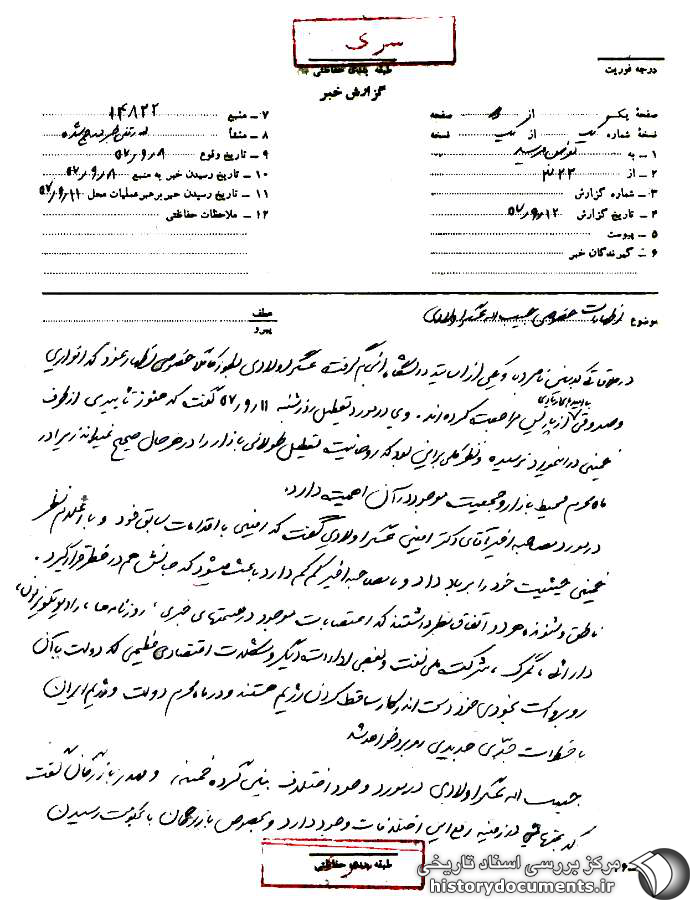 سری
طبقه بندی حفاظتی
گزارش خبر
درجه فوریت
صفحه یک از صفحه
نسخه شماره یک از یک نسخه
۱ – به
۲ – از ۳۲۲
۳ – شماره گزارش
۴ – تاریخ گزارش ۵۷٫۹٫۱۲
۵ – پیوست
۶ – گیرندگان خبر
۷ – منبع ۱۴۸۲۲
۸ – منشأ
۹ – تاریخ وقوع ۵۷٫۹٫۸
۱۰ – تاریخ رسیدن خبر به منبع ۵۷٫۹٫۸
۱۱ – تاریخ رسیدن خبر برهبر عملیات محل ۵۷٫۹٫۱۱
۱۲ – ملاحظات حفاظتی
موضوع اظهارات خصوصی حبیب اله عسگراولادی
عطف
پیرو
در ملاقاتی که بین نامبرده و یکی از اساتید دانشگاه انجام گرفت عسگراولادی بطور کاملا خصوصی اظهار نمود که انواری
و صدوقی از پاریس مراجعت کرده‌اند. وی در مورد تعطیل روز شنبه ۵۷٫۹٫۱۱ گفت که هنوز تأییدی از طرف
خمینی در اینمورد نرسیده و نظر بر این بود که روحانیت تعطیل طولانی بازار را در هر حال صحیح نمیداند زیرا در
ماه محرم محیط بازار و جمعیت موجود در آن اهمیت دارد.
در مورد مصاحبه اخیر آقای دکتر امینی عسگراولادی گفت که امینی با اقدامات سابق خود و با اعلام نظر
خمینی حیثیت خود را بر باد داد و مصاحبه اخیر کم کم دارد باعث میشود که جانش هم در خطر قرار گیرد.
ناطق و شنونده هر دو اتفاق نظر داشتند که اعتصابات موجود در قسمتهای خبری، روزنامه‌ها، رادیو تلویزیون،
دارائی، گمرک، شرکت ملی نفت و بعضی ادارات دیگر و مشکلات اقتصادی عظیمی که دولت با آن
روبروست بخودی خود دست اندرکار ساقط کردن رژیم هستند و در ماه محرم دولت و رژیم ایران
با خطرات جدی جدیدی روبرو خواهد شد
حبیب اله عسگراولادی در مورد وجود اختلاف بین گروه خمینی و مهدی بازرگان گفت
که در زمینه رفع این اختلافات وجود دارد و بخصوص بازرگان با بحکومت رسیدن
طبقه بندی حفاظتی
مرکز بررسی اسناد تاریخی
historydocuments.ir